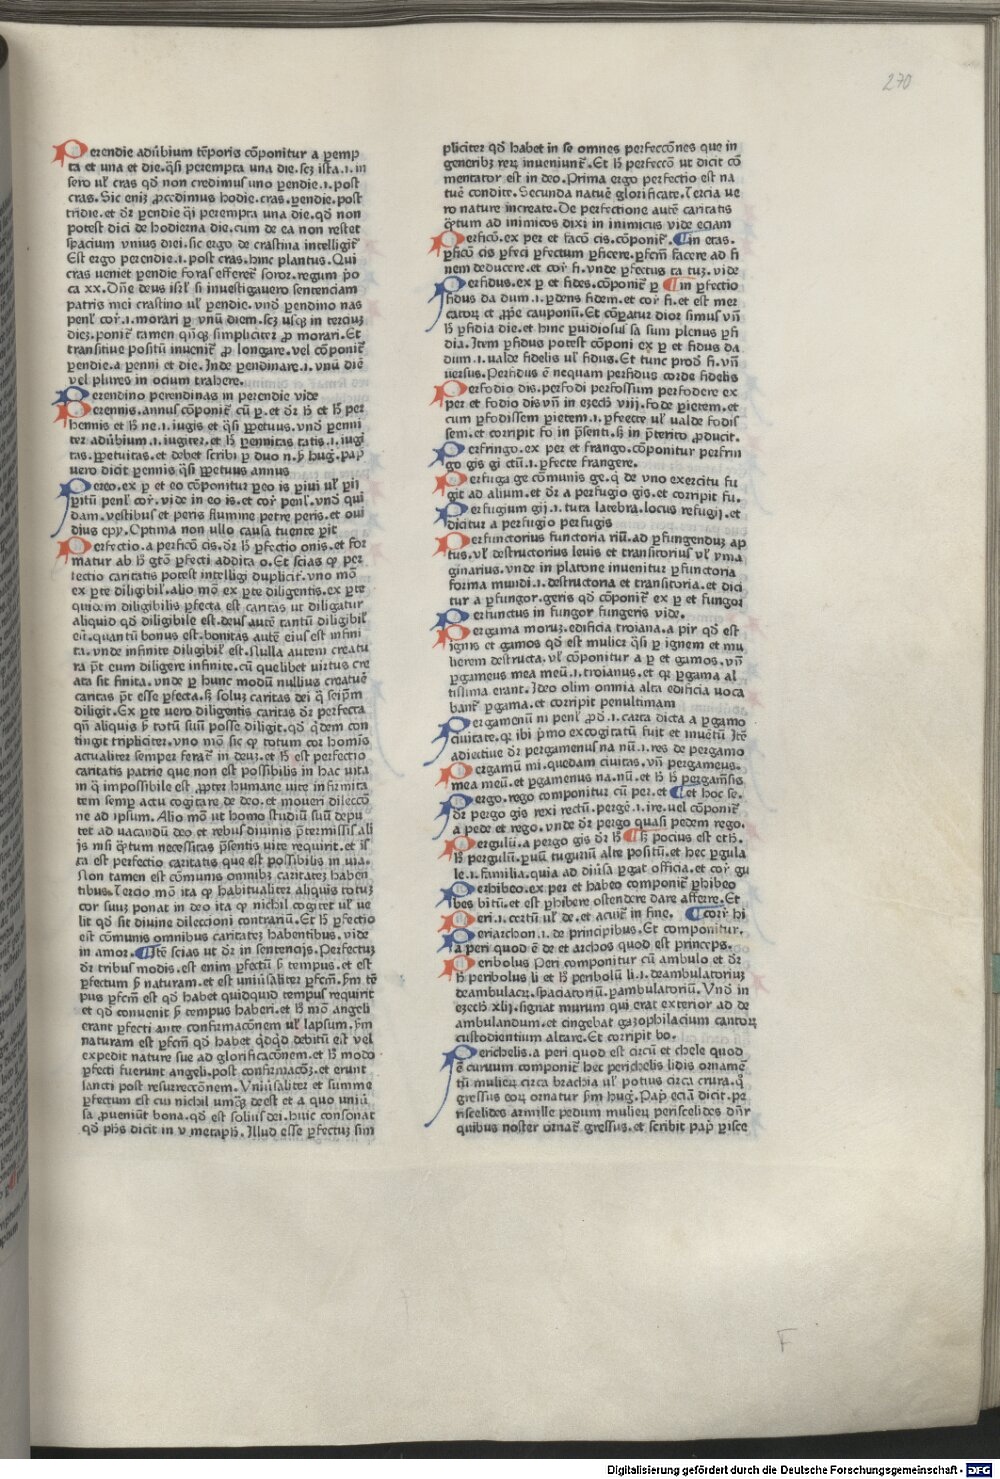 270
Perendie adũbium tẽporis cõponitur a pemp
ta et una et die.q̃si perempta una die.scꝫ ista.i.in
sero ul̉ cras qd̉ non credimus uno ꝑendie.i.post
cras. Sic eniꝫ ꝓcedimus hodie.cras.ꝑendie.post
tridie.et dr̃ ꝑendie q̃i perempta una die.qd̉ non
potest dici de hodierna die.cum de ea non restet
spacium unius diei.sic ergo de crastina intelligit᷑
Est ergo perendie.i.post cras.hinc plantus. Qui
cras ueniet ꝑendie foras efferet᷑ soror.regum p̉o
ca xx. Dñe deus isrl̉ si inuestigauero sentenciam
patris mei crastino ul̉ ꝑendie. vnd̉ ꝑendino nas
penl̉ cor̃.i.morari ꝑ vnũ diem.scꝫ usqꝫ in terciuꝫ
dieꝫ.ponit᷑ tamen qñqꝫ simpliciter ꝓ morari.Et
transitiue positũ inuenit᷑ ꝓ longare.vel cõponit᷑
ꝑendie.a penni et die. Inde ꝑendinare.i.vnũ diẽ
vel plures in ocium trahere.
Perendino perendinas in perendie vide
Perennis.annus cõponit᷑ cũ ꝑ.et dr̃ h̉ et h̉ per
hennis et h̉ ne.i.iugis et q̃si ꝑpetuus.vnd̉ ꝑenni
ter adũbium.i.iugiter.et h̉ ꝑennitas tatis.i.iugi
tas.ꝑpetuitas.et debet scribi ꝑ duo n.ẜm hug̃.pap̉
vero dicit ꝑennis q̃si ꝑpetuus annus
Pereo.ex ꝑ et eo cõponitur ꝑeo is ꝑiui ul̉ ꝑij
ꝑitũ penl̉ cor̃.vide in eo is.et cor̃ penl̉.vnd̉ qui
dam.vestibus et peris flumine petre peris.et oui
dius epy.Optima non ullo causa tuente ꝑit
Perfectio.a perficõ cis.dr̃ h̉ ꝑfectio onis.et for
matur ab h̉ gt̃o ꝑfecti addita o.Et scias qꝫ per
fectio caritatis potest intelligi duplicit᷑.vno mõ
ex ꝑte diligibil̉.alio mõ ex ꝑte diligentis.ex ꝑte
quidem diligibilis ꝑfecta est caritas ut diligatur
aliquid qd̉ diligibile est.deus autẽ tantũ diligibil̉
est.quantũ bonus est.bonitas autẽ eius est infini
ta.vnde infinite diligibil̉ est.Nulla autem creatu
ra põt eum diligere infinite.cũ quelibet uirtus cre
ata sit finita.vnde ꝑ hunc modũ nullius creatuẽ
caritas põt esse ꝑfecta.s̉ soluꝫ caritas dei q̃ seip̃m
diligit.Ex ꝑte vero diligentis caritas dr̃ perfecta
qñ aliquis ẜm totũ suũ posse diligit.qd̉ q̃dem con
tingit tripliciter.vno mõ sic qꝫ totum cor homis
actualiter semper ferat᷑ in deuꝫ.et h̉ est perfectio
caritatis patrie que non est possibilis in hac uita
in q̃ impossibile est ꝓpter humane uite infirmita
tem semꝑ actu cogitare de deo.et moueri dileccõ
ne ad ipsum.Alio mõ ut homo studiũ suũ depu
tet ad uacandũ deo et rebus diuinis p̃termissis alĩ
is nisi q̃tum necessitas p̃sentis vite requirit.et is
ta est perfectio caritatis que est possibilis in uia.
Non tamen est cõmunis omnibꝫ caritateꝫ haben
tibus.Tercio mõ ita qꝫ habitualiter aliquis totuꝫ
cor suuꝫ ponat in deo ita qꝫ nichil cogitet ul̉ ue
lit qd̉ sit diuine dileccioni contrariũ.Et h̉ ꝑfectio
est cõmunis omnibus caritateꝫ habentibus.vide
in amor. ¶Itẽ scias ut dr̃ in sentencijs.Perfectuꝫ
dr̃ tribus modis.est enim ꝑfectũ ẜm tempus.et est
ꝑfectum ẜm naturam.et est uniũsaliter ꝑfcm̃.ẜm tẽ
pus ꝑfcm̃ est qd̉ habet quidquid tempus requirit
et qd̉ conuenit ẜm tempus haberi.et h̉ mõ angeli
erant ꝑfecti ante confirmacõnem ul̉ lapsum.ẜm
naturam est ꝑfcm̃ qd̉ habet q̃dq̃d debitũ est vel
expedit nature sue ad glorificacõnem.et h̉ modo
ꝑfecti fuerunt angeli.post confirmacõꝫ.et erunt
sancti post resurreccõnem.Vniũsaliter et summe
ꝑfectum est cui nichil umqꝫ deest et a quo uniũ
sa ꝓueniũt bona.qd̉ est solius dei.huic consonat
qd̉ ph̉s dicit in v metaph̉.Illud esse ꝑfectuꝫ sim
pliciter qd̉ habet in se omnes perfeccões que in
generibꝫ reꝝ inueniunt᷑.Et h̉ perfeccõ ut dicit cõ
mentator est in deo.Prima ergo perfectio est na
tuẽ condite.Secunda natuẽ glorificate.Tercia ue
ro nature increate.De perfectione autẽ caritatis
q̃tum ad inimicos dixi in inimicus vide eciam
Perficõ.ex per et facõ cis.cõponit᷑. ¶in etas.
ꝑficõ cis ꝑfeci ꝑfectum ꝑficere.ꝑfcm̃ facere ad fi
nem deducere.et cor̃ fi.vnde ꝑfectus ta tuꝫ.vide
Perfidus.ex ꝑ et fides.cõponit᷑ ꝑ ¶in ꝑfectio
fidus da dum.i.ꝑdens fidem.et cor̃ fi.et est mer
catoꝝ et ꝓpe cauponũ.Et cõꝑatur dior simus vñ
h̉ ꝑfidia die.et hinc ꝑuidiosus sa sum plenus ꝑfi
dia.Item ꝑfidus potest cõponi ex ꝑ et fidus da
dum.i.ualde fidelis ul̉ fidus.Et tunc prod̉ fi.vñ
uersus.Perfidus ẽ nequam perfidus corde fidelis
Perfodio dis.perfodi perfossum perfodere ex
per et fodio dis vñ in ezech̉ viij.fode ꝑietem.et
cum ꝑfodissem ꝑietem.i.ꝑfecte ul̉ ualde fodis
sem.et corripit fo in p̃senti.s̉ in p̃terito ꝓducit.
Perfringo.ex per et frango.cõponitur perfrin
go gis gi ctũ.i.ꝑfecte frangere.
Perfuga ge cõmunis ge.q̃ de vno exercitu fu
git ad alium.et dr̃ a perfugio gis.et corripit fu.
Perfugium gij.i.tuta latebra.locus refugij.et
dicitur a perfugio perfugis
Perfunctorius functoria riũ.ad ꝑfungenduꝫ ap
tus.ul̉ destructorius leuis et transitorius ul̉ yma
ginarius.vnde in platone inuenitur ꝑfunctoria
forma mundi.i.destructoria et transitoria.et dici
tur a ꝑfungor.geris qd̉ cõponit᷑ ex ꝑ et fungor
Perfunctus in fungor fungeris vide.
Pergama moruꝫ.edificia troiana.a pir qd̉ est
ignis et gamos qd̉ est mulier q̃si ꝑ ignem et mu
lierem destructa.ul̉ cõponitur a ꝑ et gamos.vñ
ꝑgameus mea meũ.i.troianus.et qꝛ ꝑgama al
tissima erant.Ideo olim omnia alta edificia uoca
bant᷑ ꝑgama.et corripit penultimam
Pergamenũ ni penl̉ ꝓd̉.i.carta dicta a ꝑgamo
ciuitate.qꝛ ibi p̉mo excogitatũ fuit et inuẽtũ Itẽ
adiectiue dr̃ pergamenus na nũ.i.res de pergamo
Pergamũ mi.quedam ciuitas.vñ pergameus.
mea meũ.et ꝑgamenus na.nũ.et h̉ h̉ pergam̃sis
Pergo.rego componitur cũ per.et ¶et hoc se.
dr̃ pergo gis rexi rectũ.pergẽ.i.ire.uel cõponit᷑
a pede et rego.vnde dr̃ pergo quasi pedem rego.
Pergulũ.a pergo gis dr̃ h̉ ¶s̉ pocius est eth̉.
h̉ pergulũ.ꝑuũ tuguriũ alte positũ.et hec ꝑgula
le.i.familia.quia ad diũsa ꝑgat officia.et cor̃ gu
Perhibeo.ex per et habeo componit᷑ ꝑhibeo
bes bitũ.et est ꝑhibere ostendere dare afferre.Et
Peri.i.certũ ul̉ de.et acuit᷑ in fine. ¶cor̃ hi
Periarchon.i.de principibus.Et componitur.
a peri quod ẽ de et archos quod est princeps.
Peribolus Peri componitur cũ ambulo et dr̃
h̉ peribolus li et h̉ peribolũ li.i.deambulatoriuꝫ
deambulacꝝ.spaciatoriũ.ꝑambulatoriũ.Vnd̉ in
ezech̉ xlij.signat murum qui erat exterior ad de
ambulandum.et cingebat gazophilacium cantoꝝ
custodientium altare.Et corripit bo.
Perichelis.a peri quod est circũ et chele quod
ẽ curuum componit᷑ hec perichelis lidis ornamẽ
tũ mulieꝝ circa brachia ul̉ potius circa crura.q̃
gressus eoꝝ ornatur ẜm hug̃.Pap̉ eciã dicit.pe
riscelides armille pedum mulieꝝ periscelides dñr
quibus noster ornat᷑ gressus.et scribit pap̉ ꝑisce
F
Digitalisierung gefördert durch die Deutsche Forschungsgemeinschaft - DFG